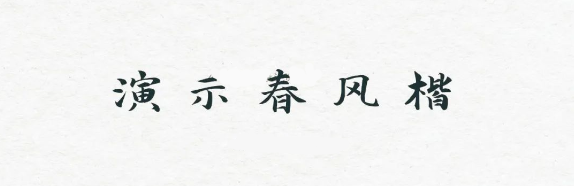 演示春风楷